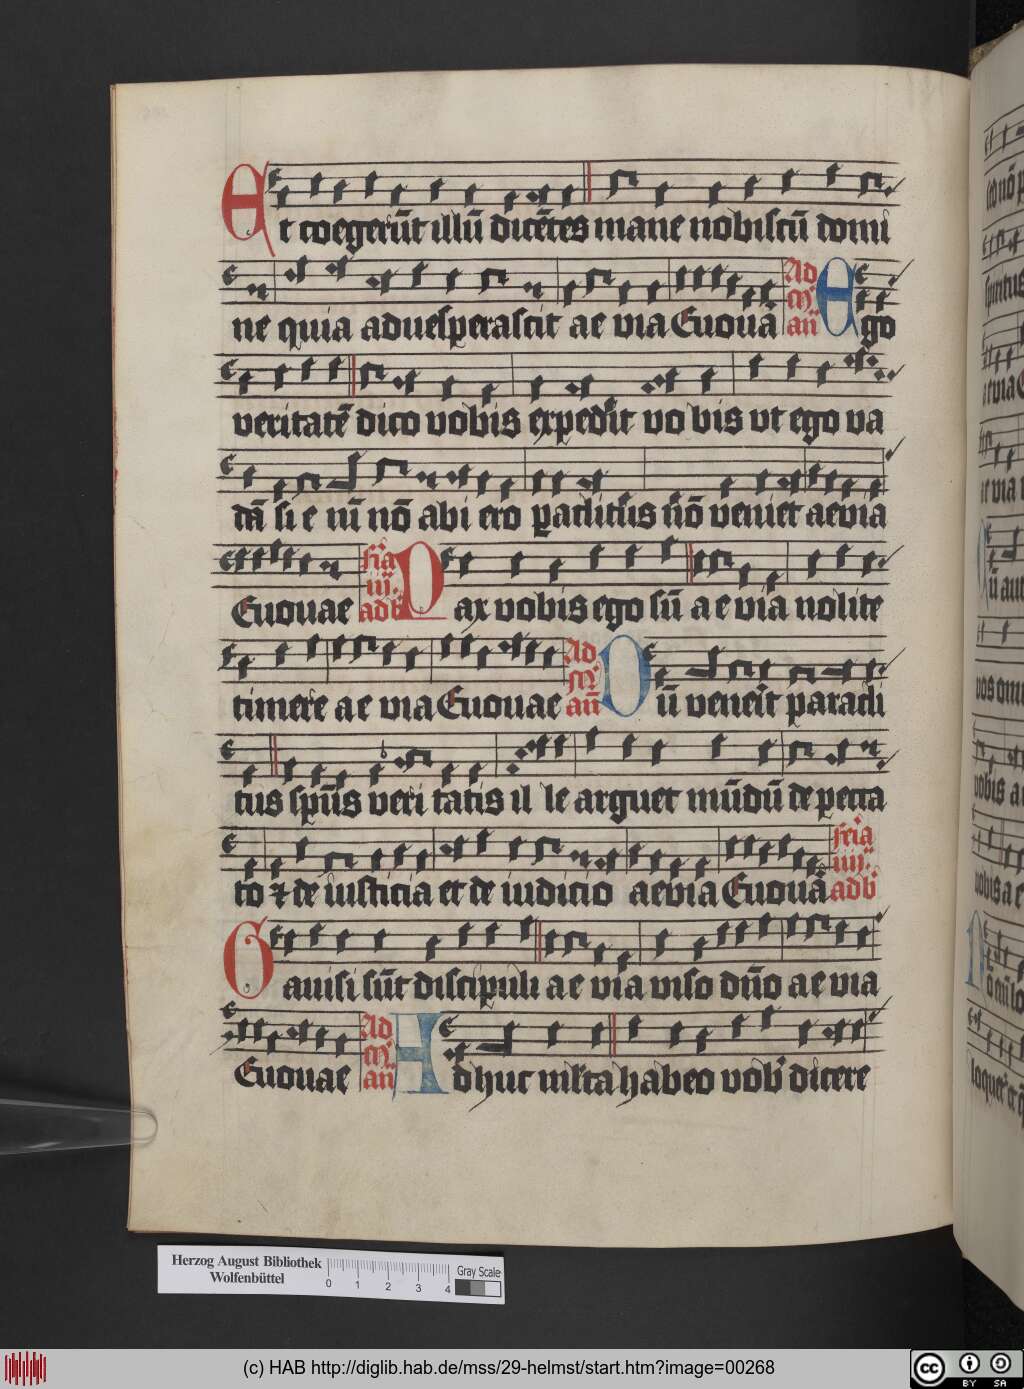 Et coegerūt illū dicētes mane nobiscū domi
ne quia aduesperascit ae via Euouā Ad m̄ añ Ego
veritatē dico vobis expedit vo bis vt ego va
dā si e nī nō abi ero paraclitus nō veniet aevia
Euouae fr̄ia iij. adb Pax vobis ego sū a e via nolite
timere a e via Euouae Ad m̄ añ Cū venerit paracli
tus sp̄us veri tatis il le arguet mūdū de pecca
to ⁊ de iusticia et de iudicio aevia Euouā feria iiij. adb
Gauisi sūt discipuli a e via viso dño a e via
Euouae Ad m̄ añ Adhuc ml̄ta habeo vob dicere
Herzog August Bibliothek
Wolfenbüttel
0 1 2 3 4
Gray Scale
(c) HAB http://diglib.hab.de/mss/29-helmst/start.htm?image=00268
cc BY SA